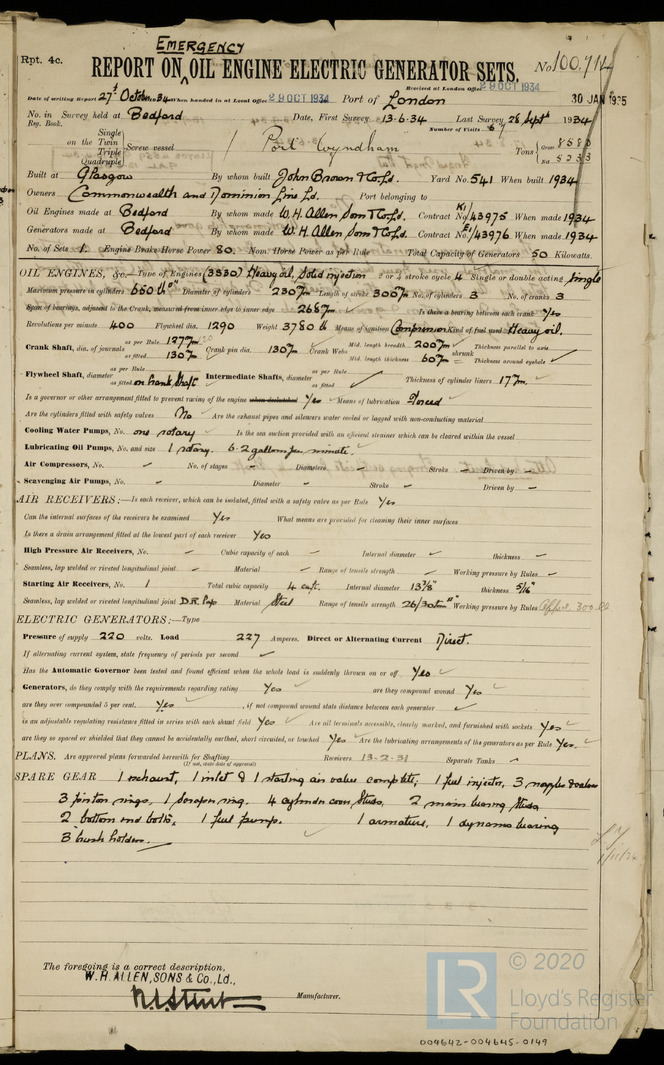 Rpt. 4c.
EMERGENCY
REPORT ON OIL ENGINE ELECTRIC GENERATOR SETS.
No. 100,714
Received at London Office 29 OCT 1934
Date of writing Report 27th October 34 When handed in at Local Office 29 OCT 1934 Port of London 30 JAN 1935
No. in Survey held at Bedford Date, First Survey 13-6-34 Last Survey 28 Sept 1934
Reg. Book. Number of Visits 6
Single
on the Twin
Triple
Quadruple
Screw vessel Port Wyndham Tons Gross 8580
Net 5233
Built at Glasgow By whom built John Brown & Co. Ld. Yard No. 541 When built 1934
Owners Commonwealth and Dominion Line Ld. Port belonging to
Oil Engines made at Bedford By whom made W. H. Allen Sons & Co. Ld. Contract No. K1/43975 When made 1934
Generators made at Bedford By whom made W. H. Allen Sons & Co. Ld. Contract No. E1/43976 When made 1934
No. of Sets 1. Engine Brake Horse Power 80. Nom. Horse Power as per Rule Total Capacity of Generators 50 Kilowatts.
OIL ENGINES, &c.—Type of Engines (3S30) Heavy oil, Solid injection 2 or 4 stroke cycle 4 Single or double acting Single
Maximum pressure in cylinders 650 lb/□" Diameter of cylinders 230 m/m Length of stroke 300 m/m No. of cylinders 3 No. of cranks 3
Span of bearings, adjacent to the Crank, measured from inner edge to inner edge 268 m/m Is there a bearing between each crank Yes
Revolutions per minute 400 Flywheel dia. 1290 Weight 3780 lb Means of ignition Compression Kind of fuel used Heavy oil.
Crank Shaft, dia. of journals as per Rule 127 m/m as fitted 130 m/m Crank pin dia. 130 m/m Crank Webs Mid. length breadth 200 m/m Mid. length thickness 60 m/m shrunk Thickness parallel to axis Thickness around eyehole
Flywheel Shaft, diameter as per Rule as fitted on Crank Shaft Intermediate Shafts, diameter as per Rule as fitted Thickness of cylinder liners 17 m/m.
Is a governor or other arrangement fitted to prevent racing of the engine when declutched Yes Means of lubrication Forced
Are the cylinders fitted with safety valves No Are the exhaust pipes and silencers water cooled or lagged with non-conducting material
Cooling Water Pumps, No. one rotary Is the sea suction provided with an efficient strainer which can be cleared within the vessel
Lubricating Oil Pumps, No. and size 1 rotary. 6.2 gallons per minute.
Air Compressors, No. No. of stages Diameters Stroke Driven by
Scavenging Air Pumps, No. Diameter Stroke Driven by
AIR RECEIVERS:—Is each receiver, which can be isolated, fitted with a safety valve as per Rule Yes
Can the internal surfaces of the receivers be examined Yes What means are provided for cleaning their inner surfaces
Is there a drain arrangement fitted at the lowest part of each receiver Yes
High Pressure Air Receivers, No. Cubic capacity of each Internal diameter thickness
Seamless, lap welded or riveted longitudinal joint Material Range of tensile strength Working pressure by Rules
Starting Air Receivers, No. 1 Total cubic capacity 4 cu. ft. Internal diameter 13 3/8" thickness 5/16"
Seamless, lap welded or riveted longitudinal joint D.R. Lap Material Steel Range of tensile strength 26/30 tons/□" Working pressure by Rules Appd. 300 lb
ELECTRIC GENERATORS:—Type
Pressure of supply 220 volts. Load 227 Amperes. Direct or Alternating Current Direct.
If alternating current system, state frequency of periods per second
Has the Automatic Governor been tested and found efficient when the whole load is suddenly thrown on or off Yes
Generators, do they comply with the requirements regarding rating Yes are they compound wound Yes
are they over compounded 5 per cent. Yes, if not compound wound state distance between each generator
is an adjustable regulating resistance fitted in series with each shunt field Yes Are all terminals accessible, clearly marked, and furnished with sockets Yes
are they so spaced or shielded that they cannot be accidentally earthed, short circuited, or touched Yes Are the lubricating arrangements of the generators as per Rule Yes.
PLANS. Are approved plans forwarded herewith for Shafting Receivers 13-2-31 Separate Tanks
(If not, state date of approval)
SPARE GEAR 1 exhaust, 1 inlet & 1 starting air valve complete, 1 fuel injector, 3 nozzles & valves
3 piston rings, 1 Scraper ring. 4 cylinder cover studs, 2 main bearing studs
2 bottom end bolts, 1 fuel pump. 1 armature, 1 dynamo bearing
3 brush holders.
The foregoing is a correct description,
W. H. ALLEN, SONS & Co., Ld.,
Manufacturer.
LR
© 2020
Lloyd's Register
Foundation
004642-004645-0149